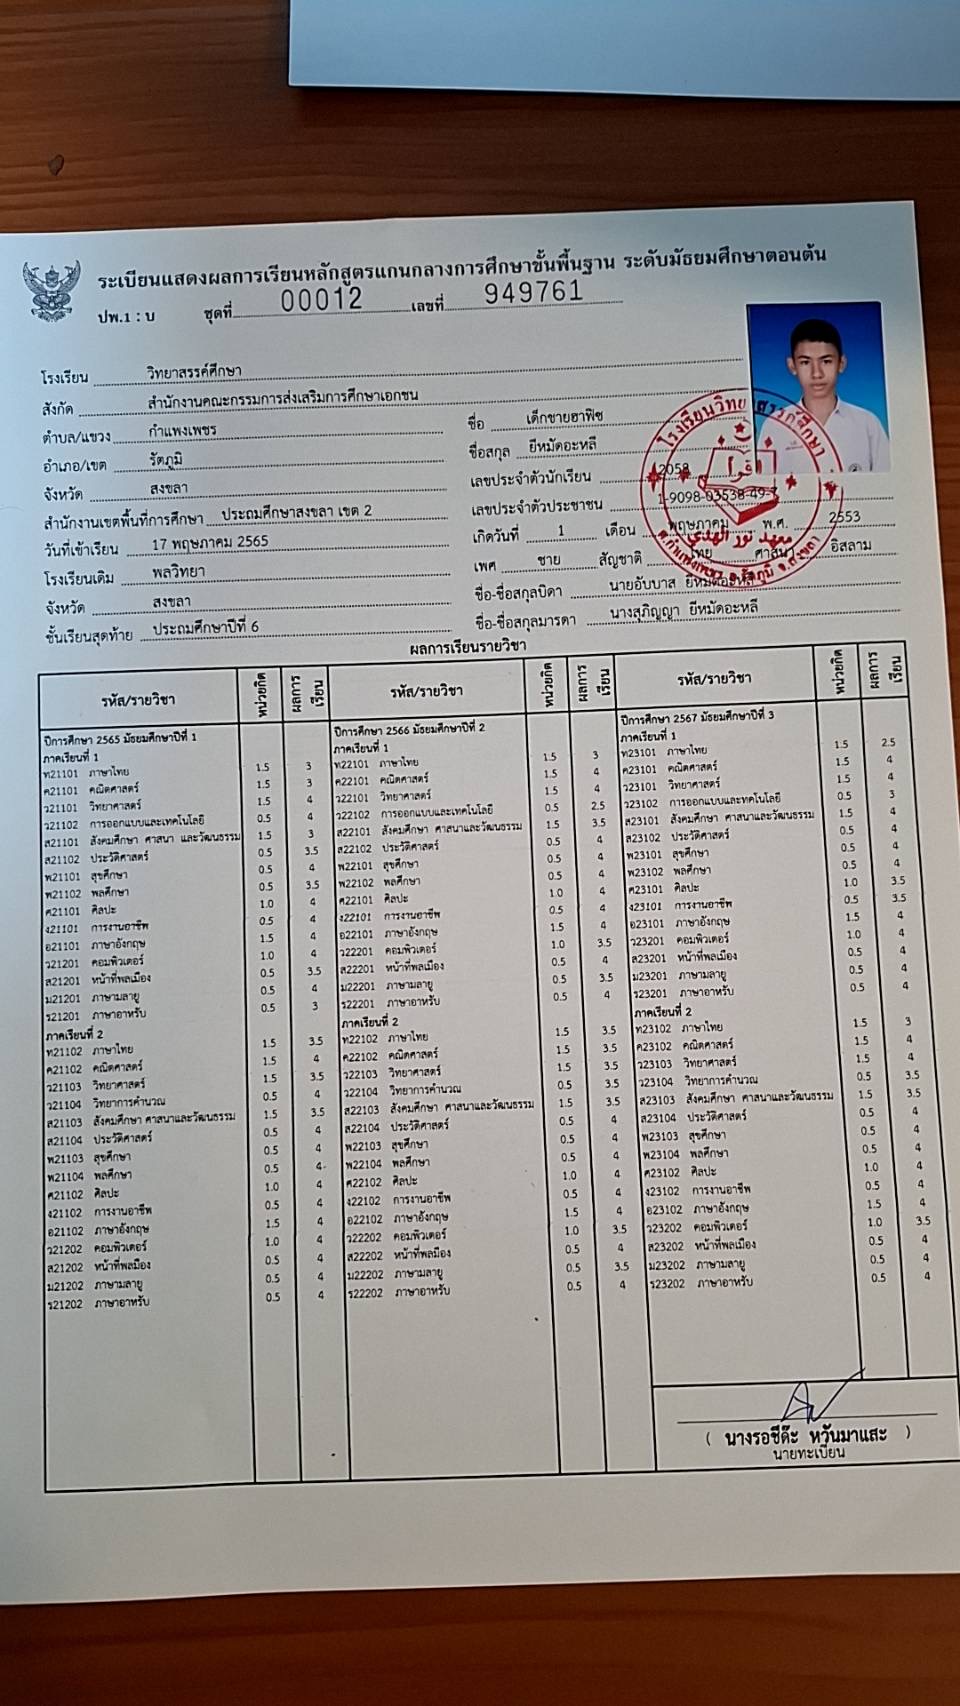 ระเบียนแสดงผลการเรียนหลักสูตรแกนกลางการศึกษาขั้นพื้นฐาน ระดับมัธยมศึกษาตอนต้น
ปพ.1 : บ ชุดที่ 00012 เลขที่ 949761
โรงเรียน วิทยาสรรค์ศึกษา
สังกัด สำนักงานคณะกรรมการส่งเสริมการศึกษาเอกชน
ตำบล/แขวง กำแพงเพชร
อำเภอ/เขต รัตภูมิ
จังหวัด สงขลา
สำนักงานเขตพื้นที่การศึกษา ประถมศึกษาสงขลา เขต 2
วันที่เข้าเรียน 17 พฤษภาคม 2565
โรงเรียนเดิม พลวิทยา
จังหวัด สงขลา
ชั้นเรียนสุดท้าย ประถมศึกษาปีที่ 6
ชื่อ เด็กชายฮาฟิซ
ชื่อสกุล ยีหมัดอะหลี
เลขประจำตัวนักเรียน 2058
เลขประจำตัวประชาชน 1-9098-03538-49-
เกิดวันที่ 1 เดือน พฤษภาคม พ.ศ. 2553
เพศ ชาย สัญชาติ ไทย ศาสนา อิสลาม
ชื่อ-ชื่อสกุลบิดา นายอับบาส ยีหมัดอะหลี
ชื่อ-ชื่อสกุลมารดา นางสุภิญญา ยีหมัดอะหลี
โรงเรียนวิทยาสรรค์ศึกษา
اقرأ
معهد نور الهدى
ต.กำแพงเพชร อ.รัตภูมิ จ.สงขลา
ผลการเรียนรายวิชา
รหัส/รายวิชา หน่วยกิต ผลการเรียน
ปีการศึกษา 2565 มัธยมศึกษาปีที่ 1
ภาคเรียนที่ 1
ท21101 ภาษาไทย 1.5 3
ค21101 คณิตศาสตร์ 1.5 3
ว21101 วิทยาศาสตร์ 1.5 4
ว21102 การออกแบบและเทคโนโลยี 0.5 4
ส21101 สังคมศึกษา ศาสนา และวัฒนธรรม 1.5 3
ส21102 ประวัติศาสตร์ 0.5 3.5
พ21101 สุขศึกษา 0.5 4
พ21102 พลศึกษา 0.5 3.5
ศ21101 ศิลปะ 1.0 4
ง21101 การงานอาชีพ 0.5 4
อ21101 ภาษาอังกฤษ 1.5 4
ว21201 คอมพิวเตอร์ 1.0 4
ส21201 หน้าที่พลเมือง 0.5 3.5
ม21201 ภาษามลายู 0.5 4
ร21201 ภาษาอาหรับ 0.5 3
ภาคเรียนที่ 2
ท21102 ภาษาไทย 1.5 3.5
ค21102 คณิตศาสตร์ 1.5 4
ว21103 วิทยาศาสตร์ 1.5 3.5
ว21104 วิทยาการคำนวณ 0.5 4
ส21103 สังคมศึกษา ศาสนาและวัฒนธรรม 1.5 3.5
ส21104 ประวัติศาสตร์ 0.5 4
พ21103 สุขศึกษา 0.5 4
พ21104 พลศึกษา 0.5 4
ศ21102 ศิลปะ 1.0 4
ง21102 การงานอาชีพ 0.5 4
อ21102 ภาษาอังกฤษ 1.5 4
ว21202 คอมพิวเตอร์ 1.0 4
ส21202 หน้าที่พลเมือง 0.5 4
ม21202 ภาษามลายู 0.5 4
ร21202 ภาษาอาหรับ 0.5 4
รหัส/รายวิชา หน่วยกิต ผลการเรียน
ปีการศึกษา 2566 มัธยมศึกษาปีที่ 2
ภาคเรียนที่ 1
ท22101 ภาษาไทย 1.5 3
ค22101 คณิตศาสตร์ 1.5 4
ว22101 วิทยาศาสตร์ 1.5 4
ว22102 การออกแบบและเทคโนโลยี 0.5 2.5
ส22101 สังคมศึกษา ศาสนาและวัฒนธรรม 1.5 3.5
ส22102 ประวัติศาสตร์ 0.5 4
พ22101 สุขศึกษา 0.5 4
พ22102 พลศึกษา 0.5 4
ศ22101 ศิลปะ 1.0 4
ง22101 การงานอาชีพ 0.5 4
อ22101 ภาษาอังกฤษ 1.5 4
ว22201 คอมพิวเตอร์ 1.0 3.5
ส22201 หน้าที่พลเมือง 0.5 4
ม22201 ภาษามลายู 0.5 3.5
ร22201 ภาษาอาหรับ 0.5 4
ภาคเรียนที่ 2
ท22102 ภาษาไทย 1.5 3.5
ค22102 คณิตศาสตร์ 1.5 3.5
ว22103 วิทยาศาสตร์ 1.5 3.5
ว22104 วิทยาการคำนวณ 0.5 3.5
ส22103 สังคมศึกษา ศาสนาและวัฒนธรรม 1.5 3.5
ส22104 ประวัติศาสตร์ 0.5 4
พ22103 สุขศึกษา 0.5 4
พ22104 พลศึกษา 0.5 4
ศ22102 ศิลปะ 1.0 4
ง22102 การงานอาชีพ 0.5 4
อ22102 ภาษาอังกฤษ 1.5 4
ว22202 คอมพิวเตอร์ 1.0 3.5
ส22202 หน้าที่พลเมือง 0.5 4
ม22202 ภาษามลายู 0.5 3.5
ร22202 ภาษาอาหรับ 0.5 4
รหัส/รายวิชา หน่วยกิต ผลการเรียน
ปีการศึกษา 2567 มัธยมศึกษาปีที่ 3
ภาคเรียนที่ 1
ท23101 ภาษาไทย 1.5 2.5
ค23101 คณิตศาสตร์ 1.5 4
ว23101 วิทยาศาสตร์ 1.5 4
ว23102 การออกแบบและเทคโนโลยี 0.5 3
ส23101 สังคมศึกษา ศาสนาและวัฒนธรรม 1.5 4
ส23102 ประวัติศาสตร์ 0.5 4
พ23101 สุขศึกษา 0.5 4
พ23102 พลศึกษา 0.5 4
ศ23101 ศิลปะ 1.0 3.5
ง23101 การงานอาชีพ 0.5 3.5
อ23101 ภาษาอังกฤษ 1.5 4
ว23201 คอมพิวเตอร์ 1.0 4
ส23201 หน้าที่พลเมือง 0.5 4
ม23201 ภาษามลายู 0.5 4
ร23201 ภาษาอาหรับ 0.5 4
ภาคเรียนที่ 2
ท23102 ภาษาไทย 1.5 3
ค23102 คณิตศาสตร์ 1.5 4
ว23103 วิทยาศาสตร์ 1.5 4
ว23104 วิทยาการคำนวณ 0.5 3.5
ส23103 สังคมศึกษา ศาสนาและวัฒนธรรม 1.5 3.5
ส23104 ประวัติศาสตร์ 0.5 4
พ23103 สุขศึกษา 0.5 4
พ23104 พลศึกษา 0.5 4
ศ23102 ศิลปะ 1.0 4
ง23102 การงานอาชีพ 0.5 4
อ23102 ภาษาอังกฤษ 1.5 4
ว23202 คอมพิวเตอร์ 1.0 3.5
ส23202 หน้าที่พลเมือง 0.5 4
ม23202 ภาษามลายู 0.5 4
ร23202 ภาษาอาหรับ 0.5 4
( นางรอซีด๊ะ หวันมาแสะ )
นายทะเบียน